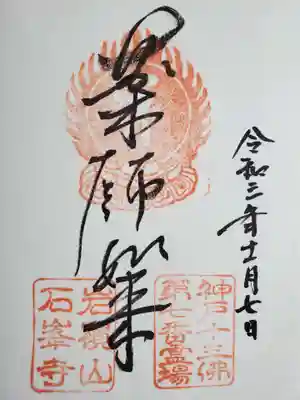 令和三年十一月七日
薬師如来
神戸十三佛
第七番霊場
岩嶺山
石峯寺